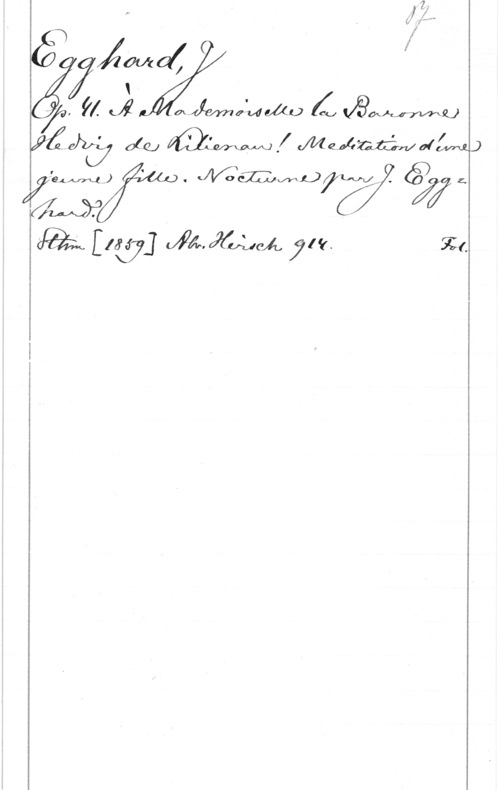 Egghard, J
Op. 41. À Mademoiselle la Baronne
Hedvig de Kilienau! Meditation d'une
jeune fille. Nocturne par J. Egg=
hard.
Sthm [1859] Abr. Hirsch 914. Fol.